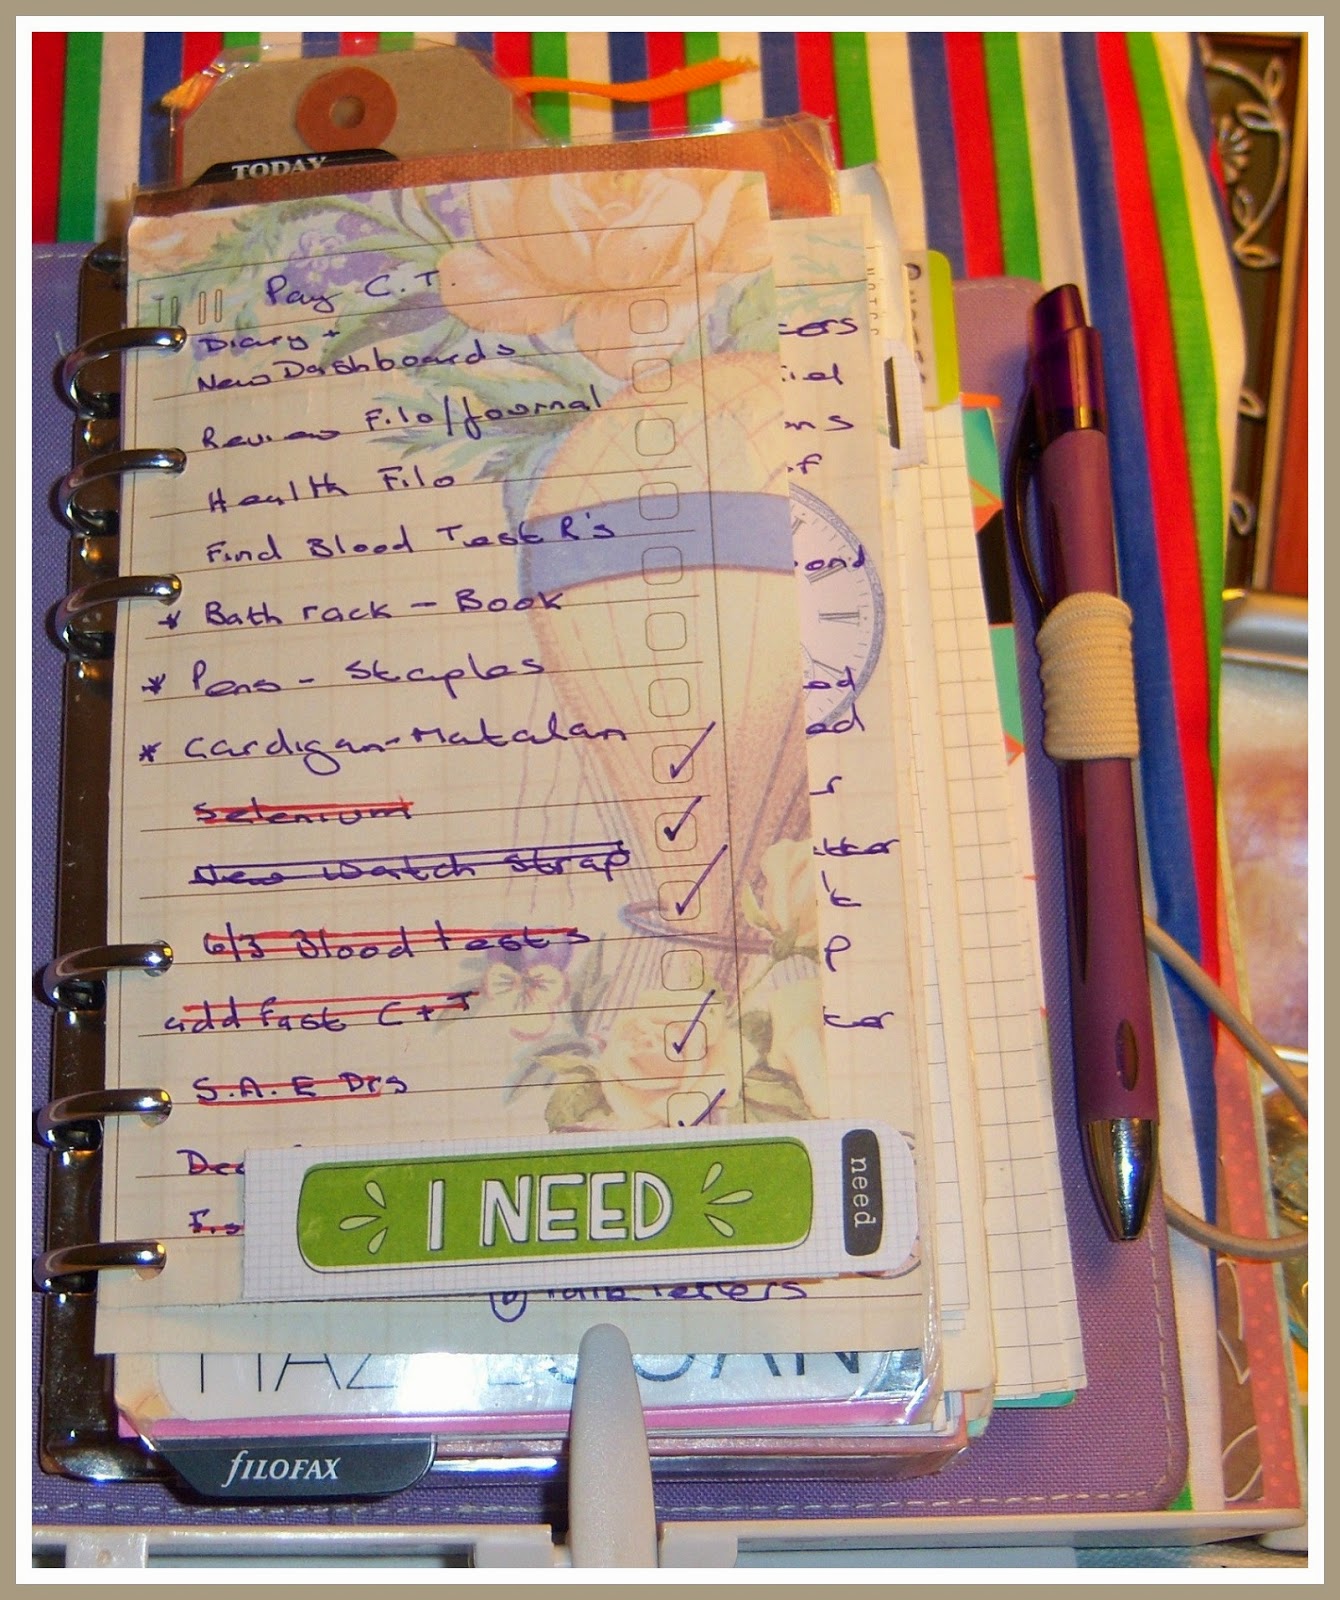 TODAY
Pay C.T.
Diary +
New Dashboards
Review Filo/Journal
Health Filo
Find Blood Test R's
* Bath rack - Book
* Pens - Staples
* Cardigan - Matalan
Selenium
New Watch Strap
6/3 Blood tests
add fast C + T
S.A.E Drs
I NEED
need
letters
filofax